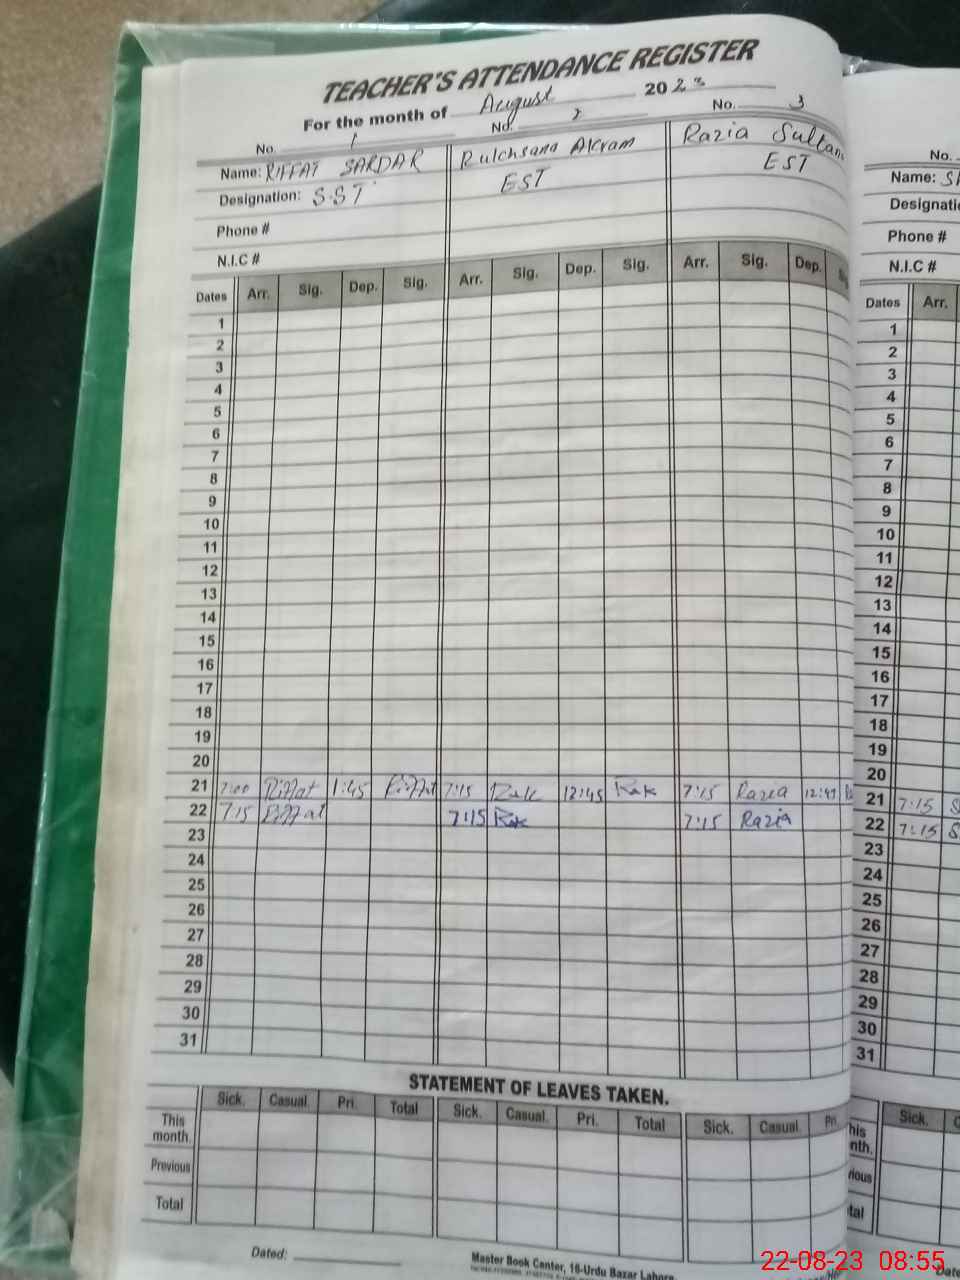 TEACHER'S ATTENDANCE REGISTER
For the month of August 2023
No. 1 No. 2 No. 3
Name: RIFFAT SARDAR Rulchsana Akram Razia Sultan
Designation: S.S.T EST EST
Phone #
N.I.C #
Dates Arr. Sig. Dep. Sig. Arr. Sig. Dep. Sig. Arr. Sig. Dep.
1
2
3
4
5
6
7
8
9
10
11
12
13
14
15
16
17
18
19
20
21 7:00 Riffat 1:45 Riffat 7:15 Rak 12:45 Rak 7:15 Razia 12:45
22 7:15 Riffat 7:15 Rak 7:15 Razia
23
24
25
26
27
28
29
30
31
STATEMENT OF LEAVES TAKEN.
Sick. Casual. Pri. Total Sick. Casual. Pri. Total Sick. Casual. Pri.
This month.
Previous
Total
Dated:
Master Book Center, 16-Urdu Bazar Lahore
No.
Name:
Designati
Phone #
N.I.C #
Dates Arr.
1
2
3
4
5
6
7
8
9
10
11
12
13
14
15
16
17
18
19
20
21 7:15 S
22 7:15 S
23
24
25
26
27
28
29
30
31
Sick.
22-08-23 08:55